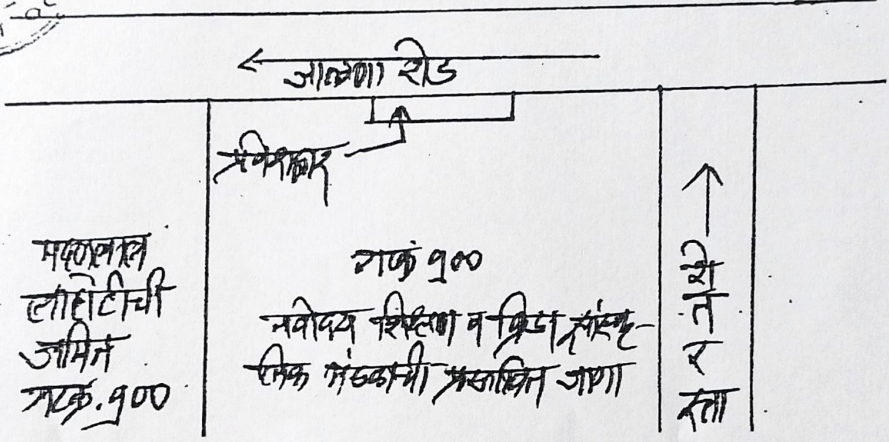 जालना रोड
प्रवेशद्वार
मदनलाल
लाहोटीची
जमिन
गटक्र. १००
गटक्रं १००
नवोदय शिक्षण व क्रिडा सांस्कृ-
तिक मंडळाची प्रस्तावित जागा
शे
त
र
स्ता